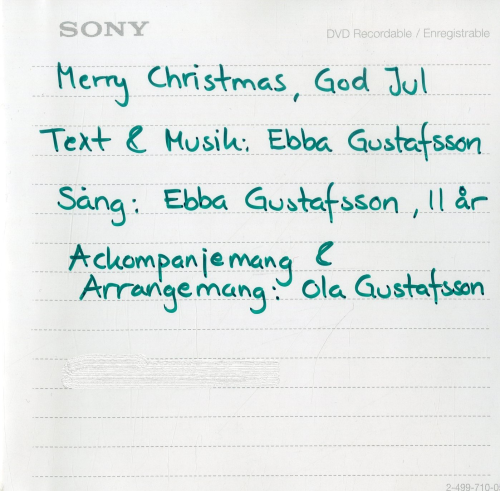 SONY
DVD Recordable / Enregistrable
Merry Christmas, God Jul
Text & Musik: Ebba Gustafsson
Sång: Ebba Gustafsson, 11 år
Ackompanjemang &
Arrangemang: Ola Gustafsson
2-499-710-0